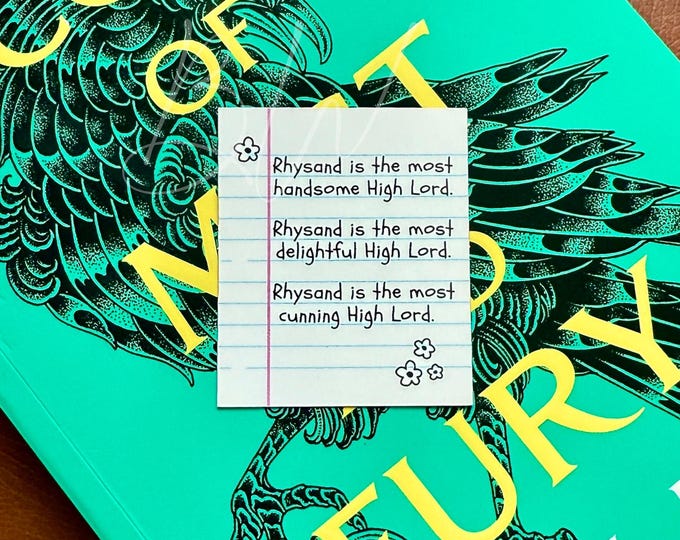 CO
OF
MIST
AND
FURY
Rhysand is the most
handsome High Lord.
Rhysand is the most
delightful High Lord.
Rhysand is the most
cunning High Lord.